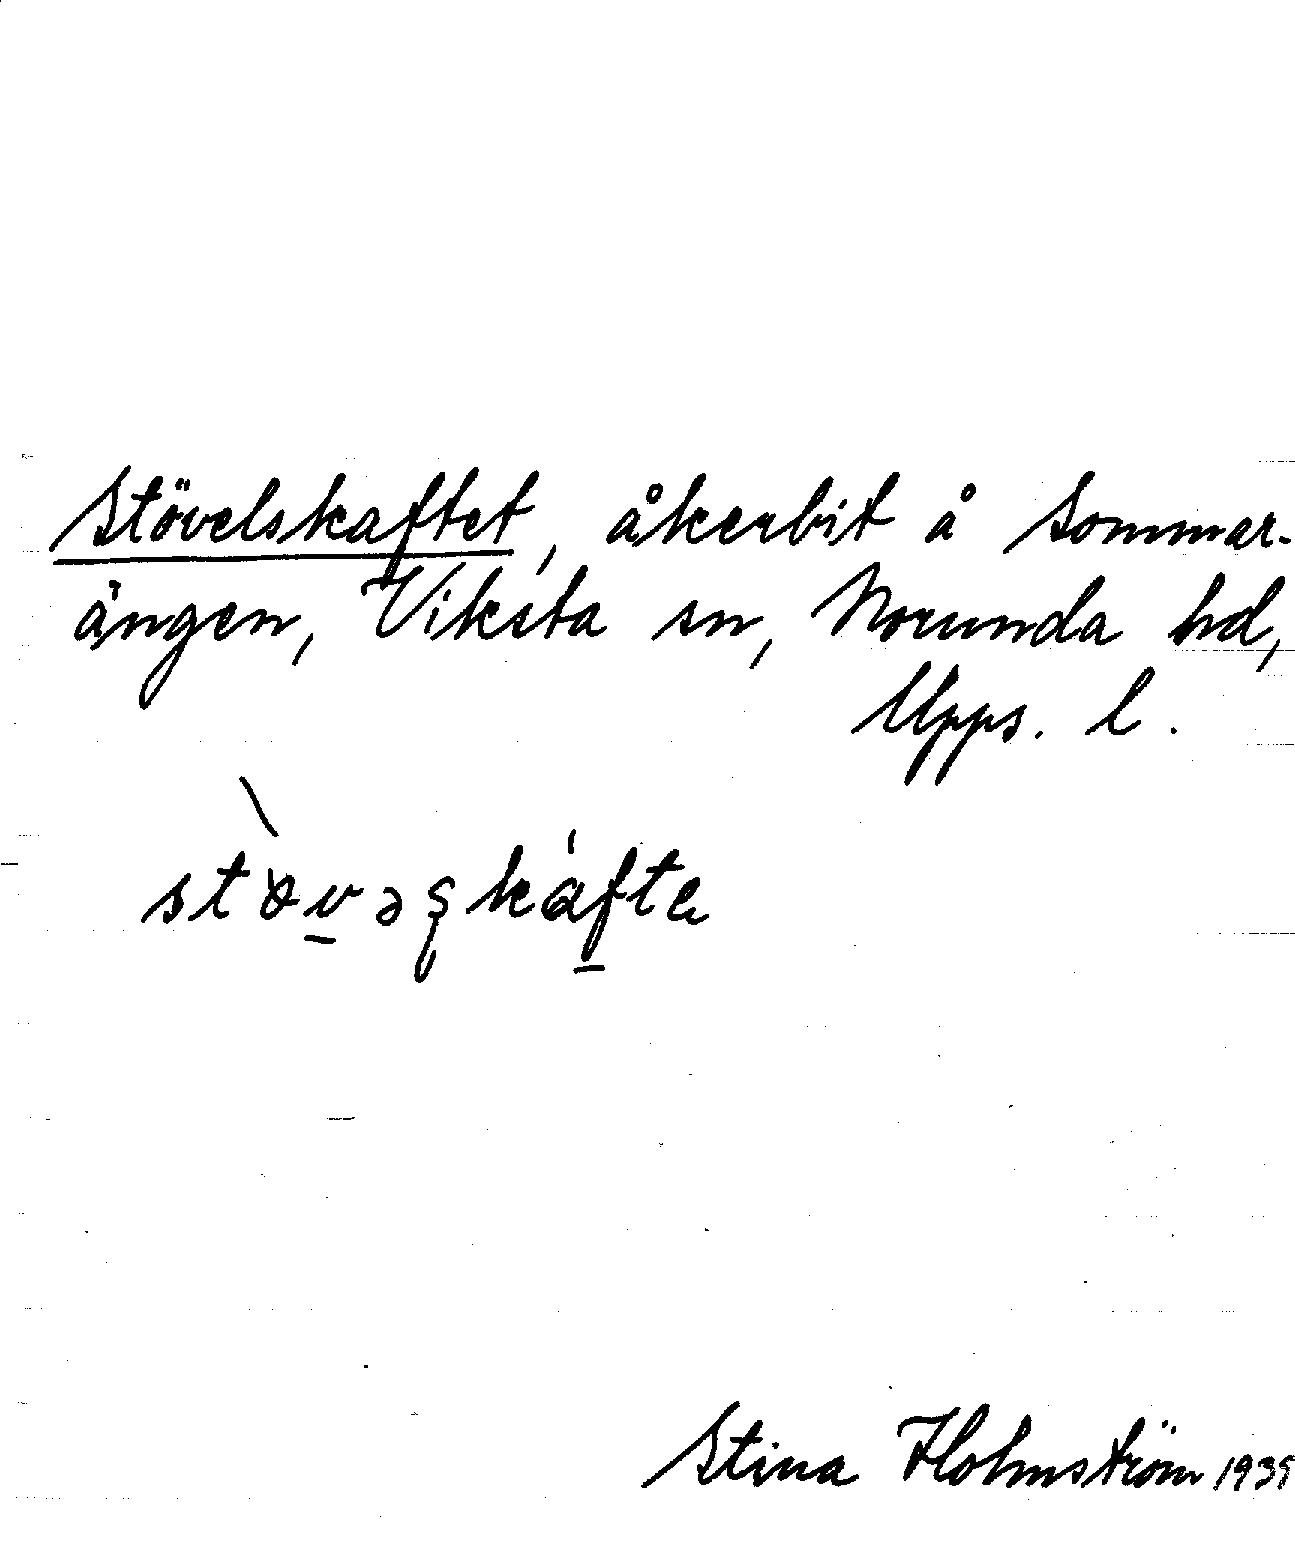 Stövelskaftet, åkerbit å Sommar-
ängen, Viksta sn, Norunda hd,
Upps. l.
Stina Holmström 1939